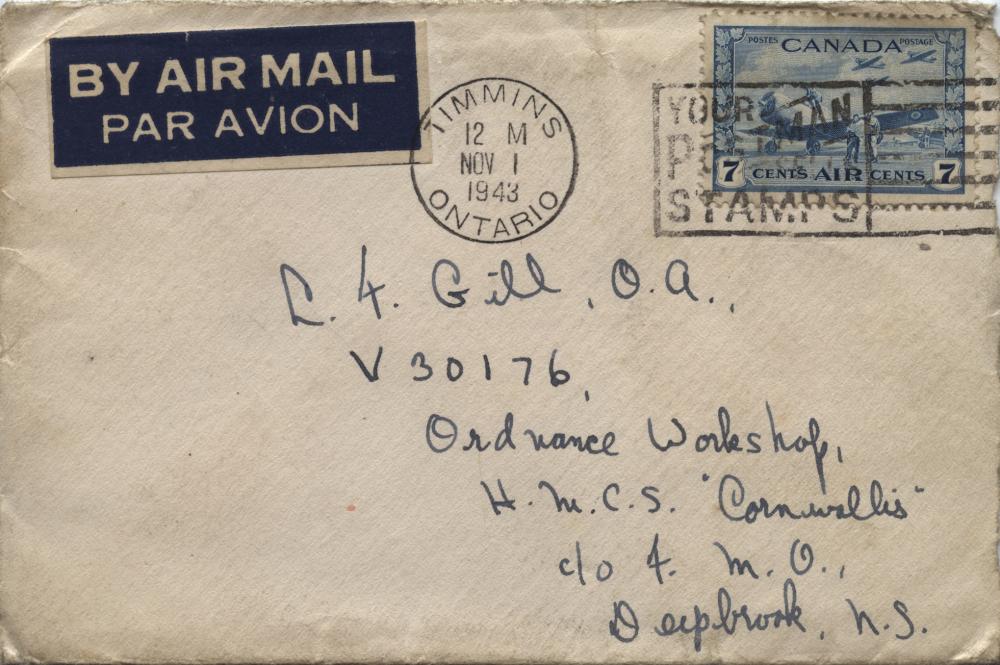 BY AIR MAIL
PAR AVION
TIMMINS
12 M
NOV 1
1943
ONTARIO
POSTES CANADA POSTAGE
7 CENTS AIR CENTS 7
YOUR MAN
STAMPS
L. F. Gill, O.A.,
V 30176,
Ordnance Workshop,
H.M.C.S. "Cornwallis"
c/o F. M. O.,
Deepbrook, N.S.